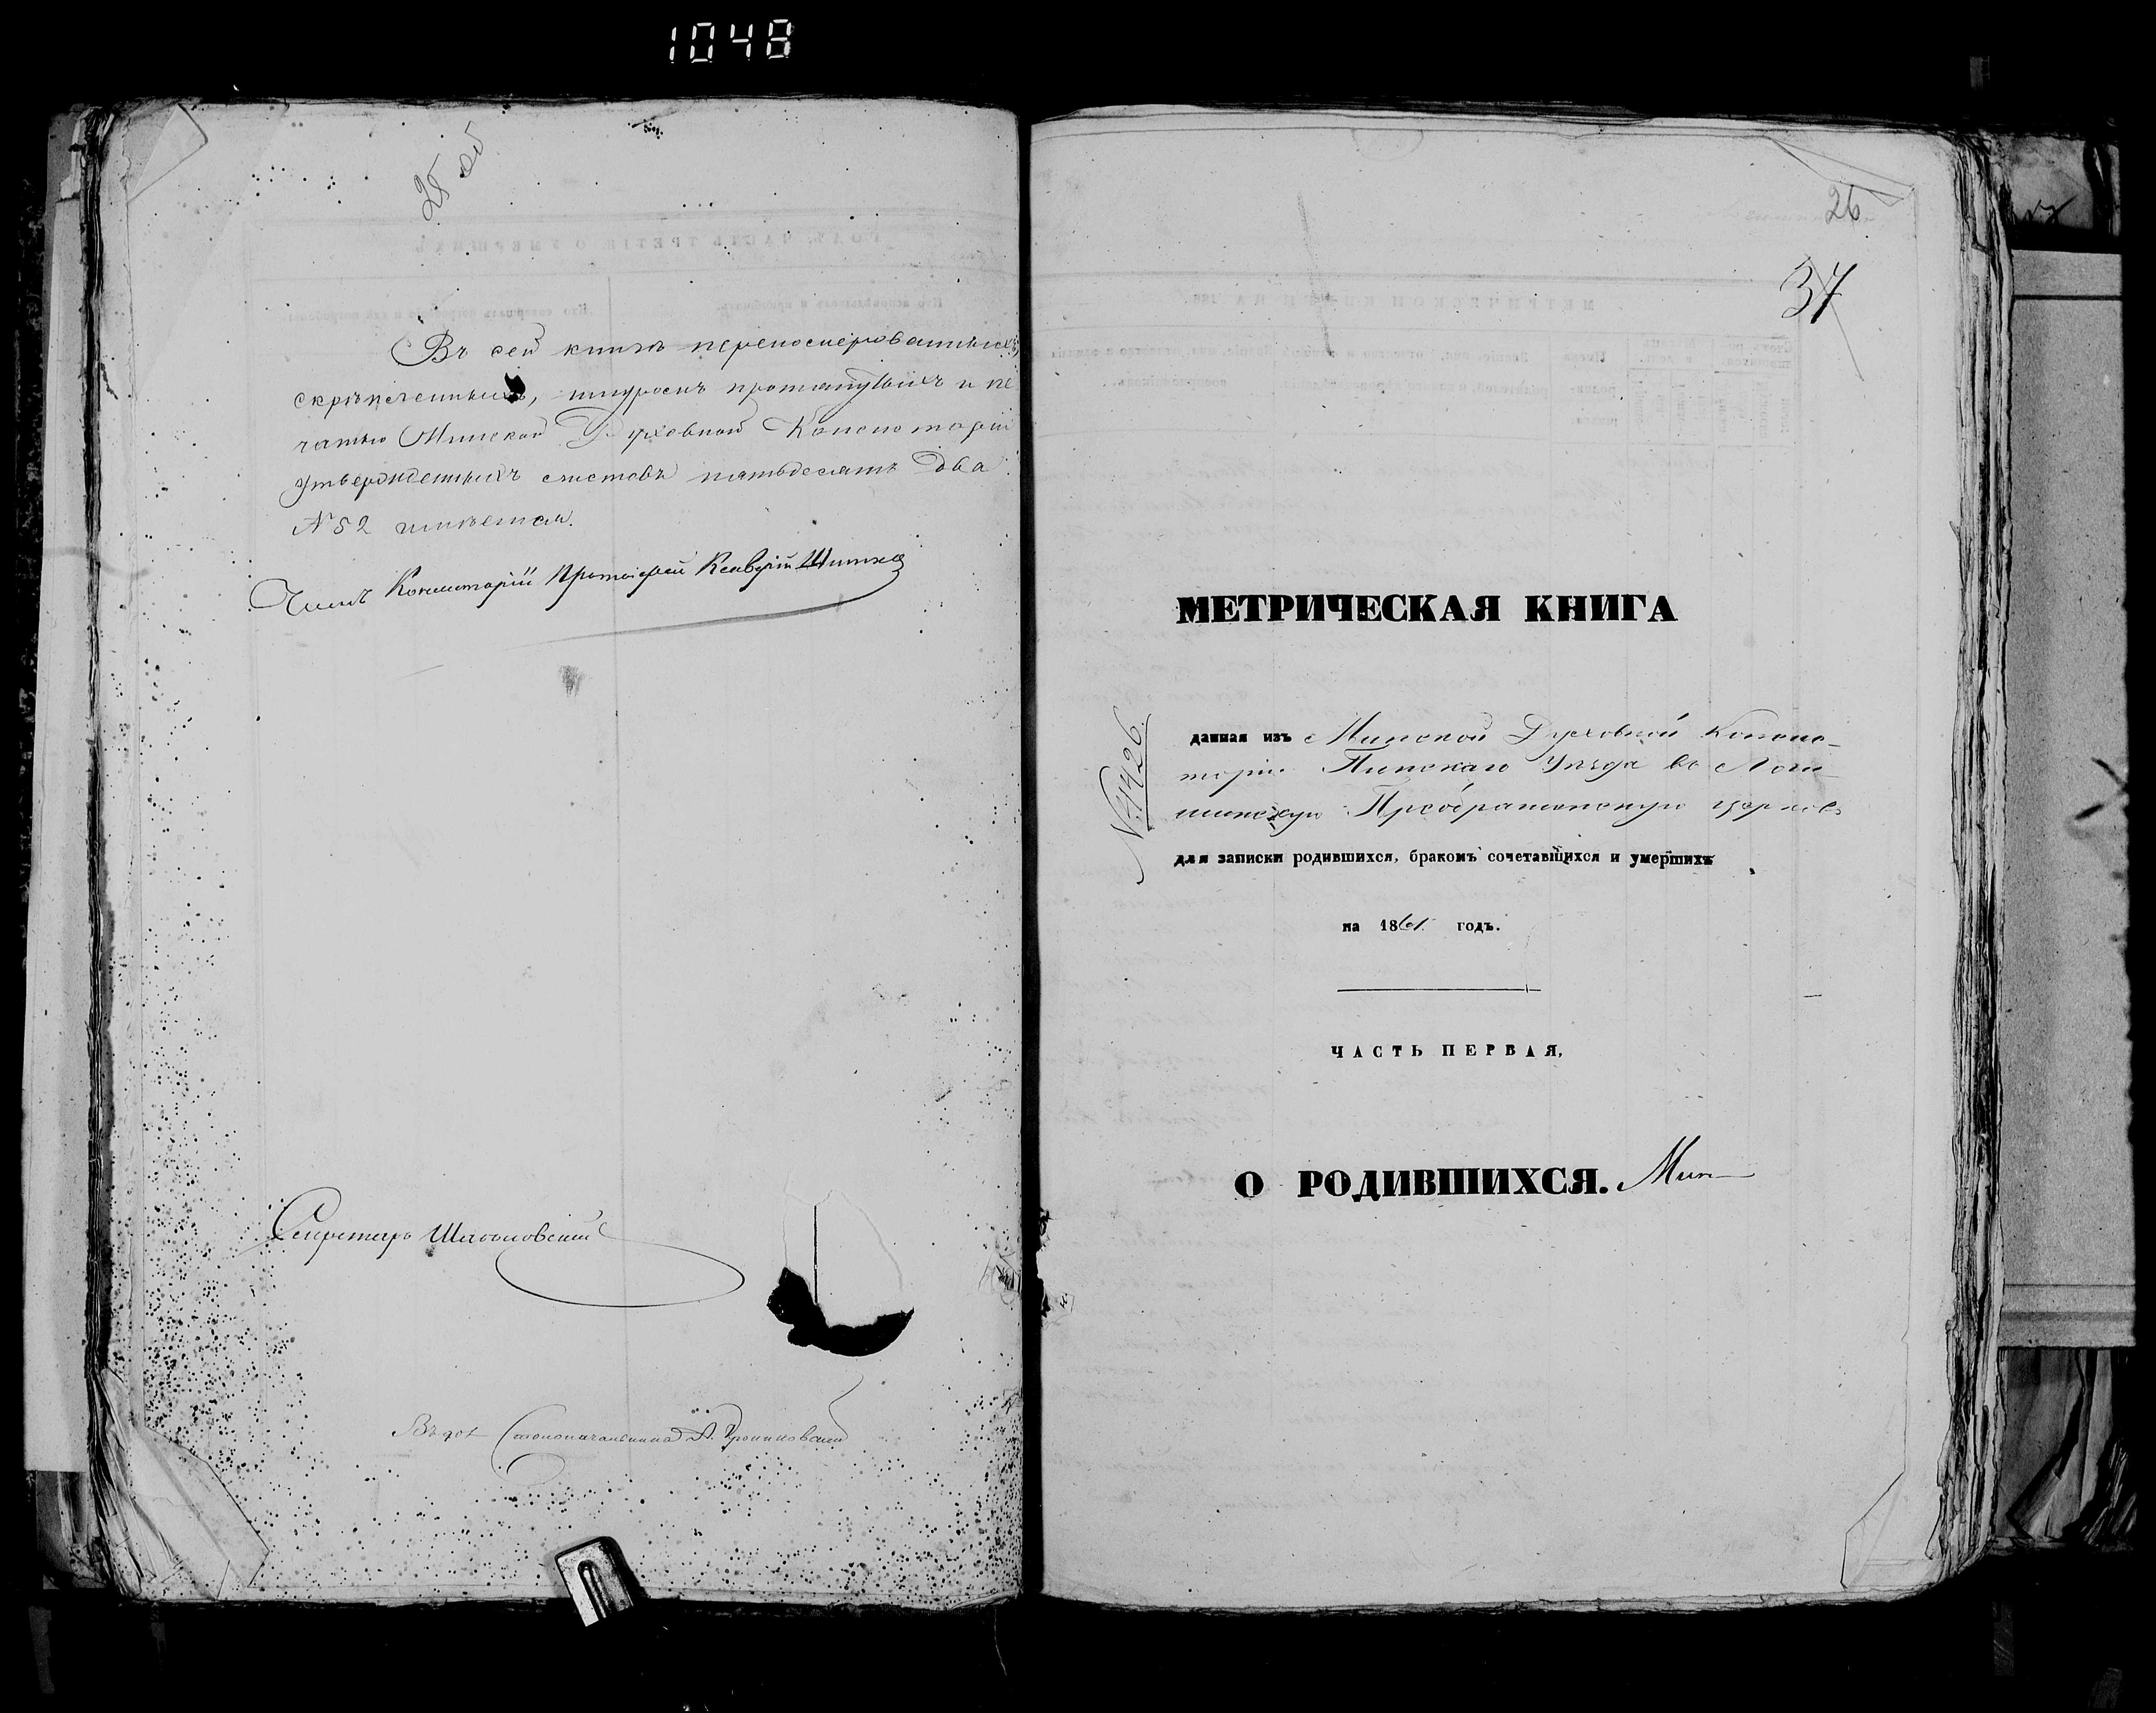 1048
25 об
Въ сей книгѣ перенумерованныхъ,
скрѣпленныхъ, шнуромъ протянутыхъ и пе
чатью Минской Духовной Консисторіи
утвержденныхъ листовъ пятьдесятъ два
№ 52 имѣется.
Членъ Консисторіи Протоіерей Ксаверій
Секретарь
Столоначальника
26
37
МЕТРИЧЕСКАЯ КНИГА
№ 4426.
данная изъ Минской Духовной Консис-
торіи Пинскаго Уѣзда въ Логи-
шинскую Преображенскую церковь
для записки родившихся, бракомъ сочетавшихся и умершихъ
на 1861 годъ.
ЧАСТЬ ПЕРВАЯ,
О РОДИВШИХСЯ. Мин